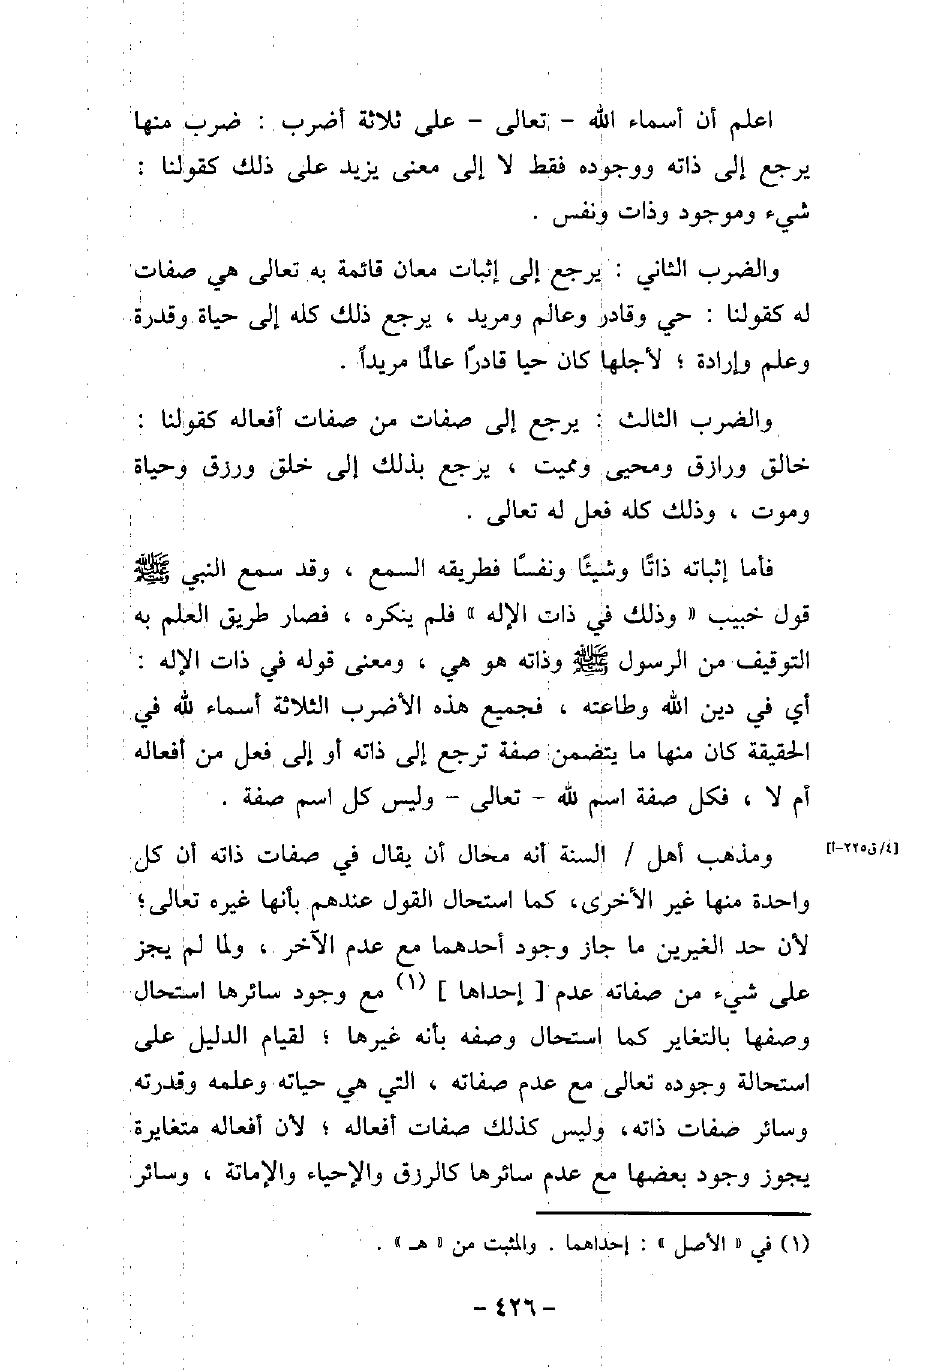 اعلم أن أسماء الله - تعالى - على ثلاثة أضرب : ضرب منها
يرجع إلى ذاته ووجوده فقط لا إلى معنى يزيد على ذلك كقولنا :
شيء وموجود وذات ونفس .
والضرب الثاني : يرجع إلى إثبات معان قائمة به تعالى هي صفات
له كقولنا : حي وقادر وعالم ومريد ، يرجع ذلك كله إلى حياة وقدرة
وعلم وإرادة ؛ لأجلها كان حيا قادرًا عالمًا مريداً .
والضرب الثالث : يرجع إلى صفات من صفات أفعاله كقولنا :
خالق ورازق ومحيى ومميت ، يرجع بذلك إلى خلق ورزق وحياة
وموت ، وذلك كله فعل له تعالى .
فأما إثباته ذاتًا وشيئًا ونفسًا فطريقه السمع ، وقد سمع النبي ﷺ
قول خبيب « وذلك في ذات الإله » فلم ينكره ، فصار طريق العلم به
التوقيف من الرسول ﷺ وذاته هو هي ، ومعنى قوله في ذات الإله :
أي في دين الله وطاعته ، فجميع هذه الأضرب الثلاثة أسماء لله في
الحقيقة كان منها ما يتضمن صفة ترجع إلى ذاته أو إلى فعل من أفعاله
أم لا ، فكل صفة اسم لله - تعالى - وليس كل اسم صفة .
ومذهب أهل / السنة أنه محال أن يقال في صفات ذاته أن كل [٤/ق٢٢٥-أ]
واحدة منها غير الأخرى، كما استحال القول عندهم بأنها غيره تعالى؛
لأن حد الغيرين ما جاز وجود أحدهما مع عدم الآخر ، ولما لم يجز
على شيء من صفاته عدم [ إحداها ] (١) مع وجود سائرها استحال
وصفها بالتغاير كما استحال وصفه بأنه غيرها ؛ لقيام الدليل على
استحالة وجوده تعالى مع عدم صفاته ، التي هي حياته وعلمه وقدرته
وسائر صفات ذاته، وليس كذلك صفات أفعاله ؛ لأن أفعاله متغايرة
يجوز وجود بعضها مع عدم سائرها كالرزق والإحياء والإماتة ، وسائر
(١) في « الأصل » : إحداهما . والمثبت من « هـ » .
- ٤٢٦ -